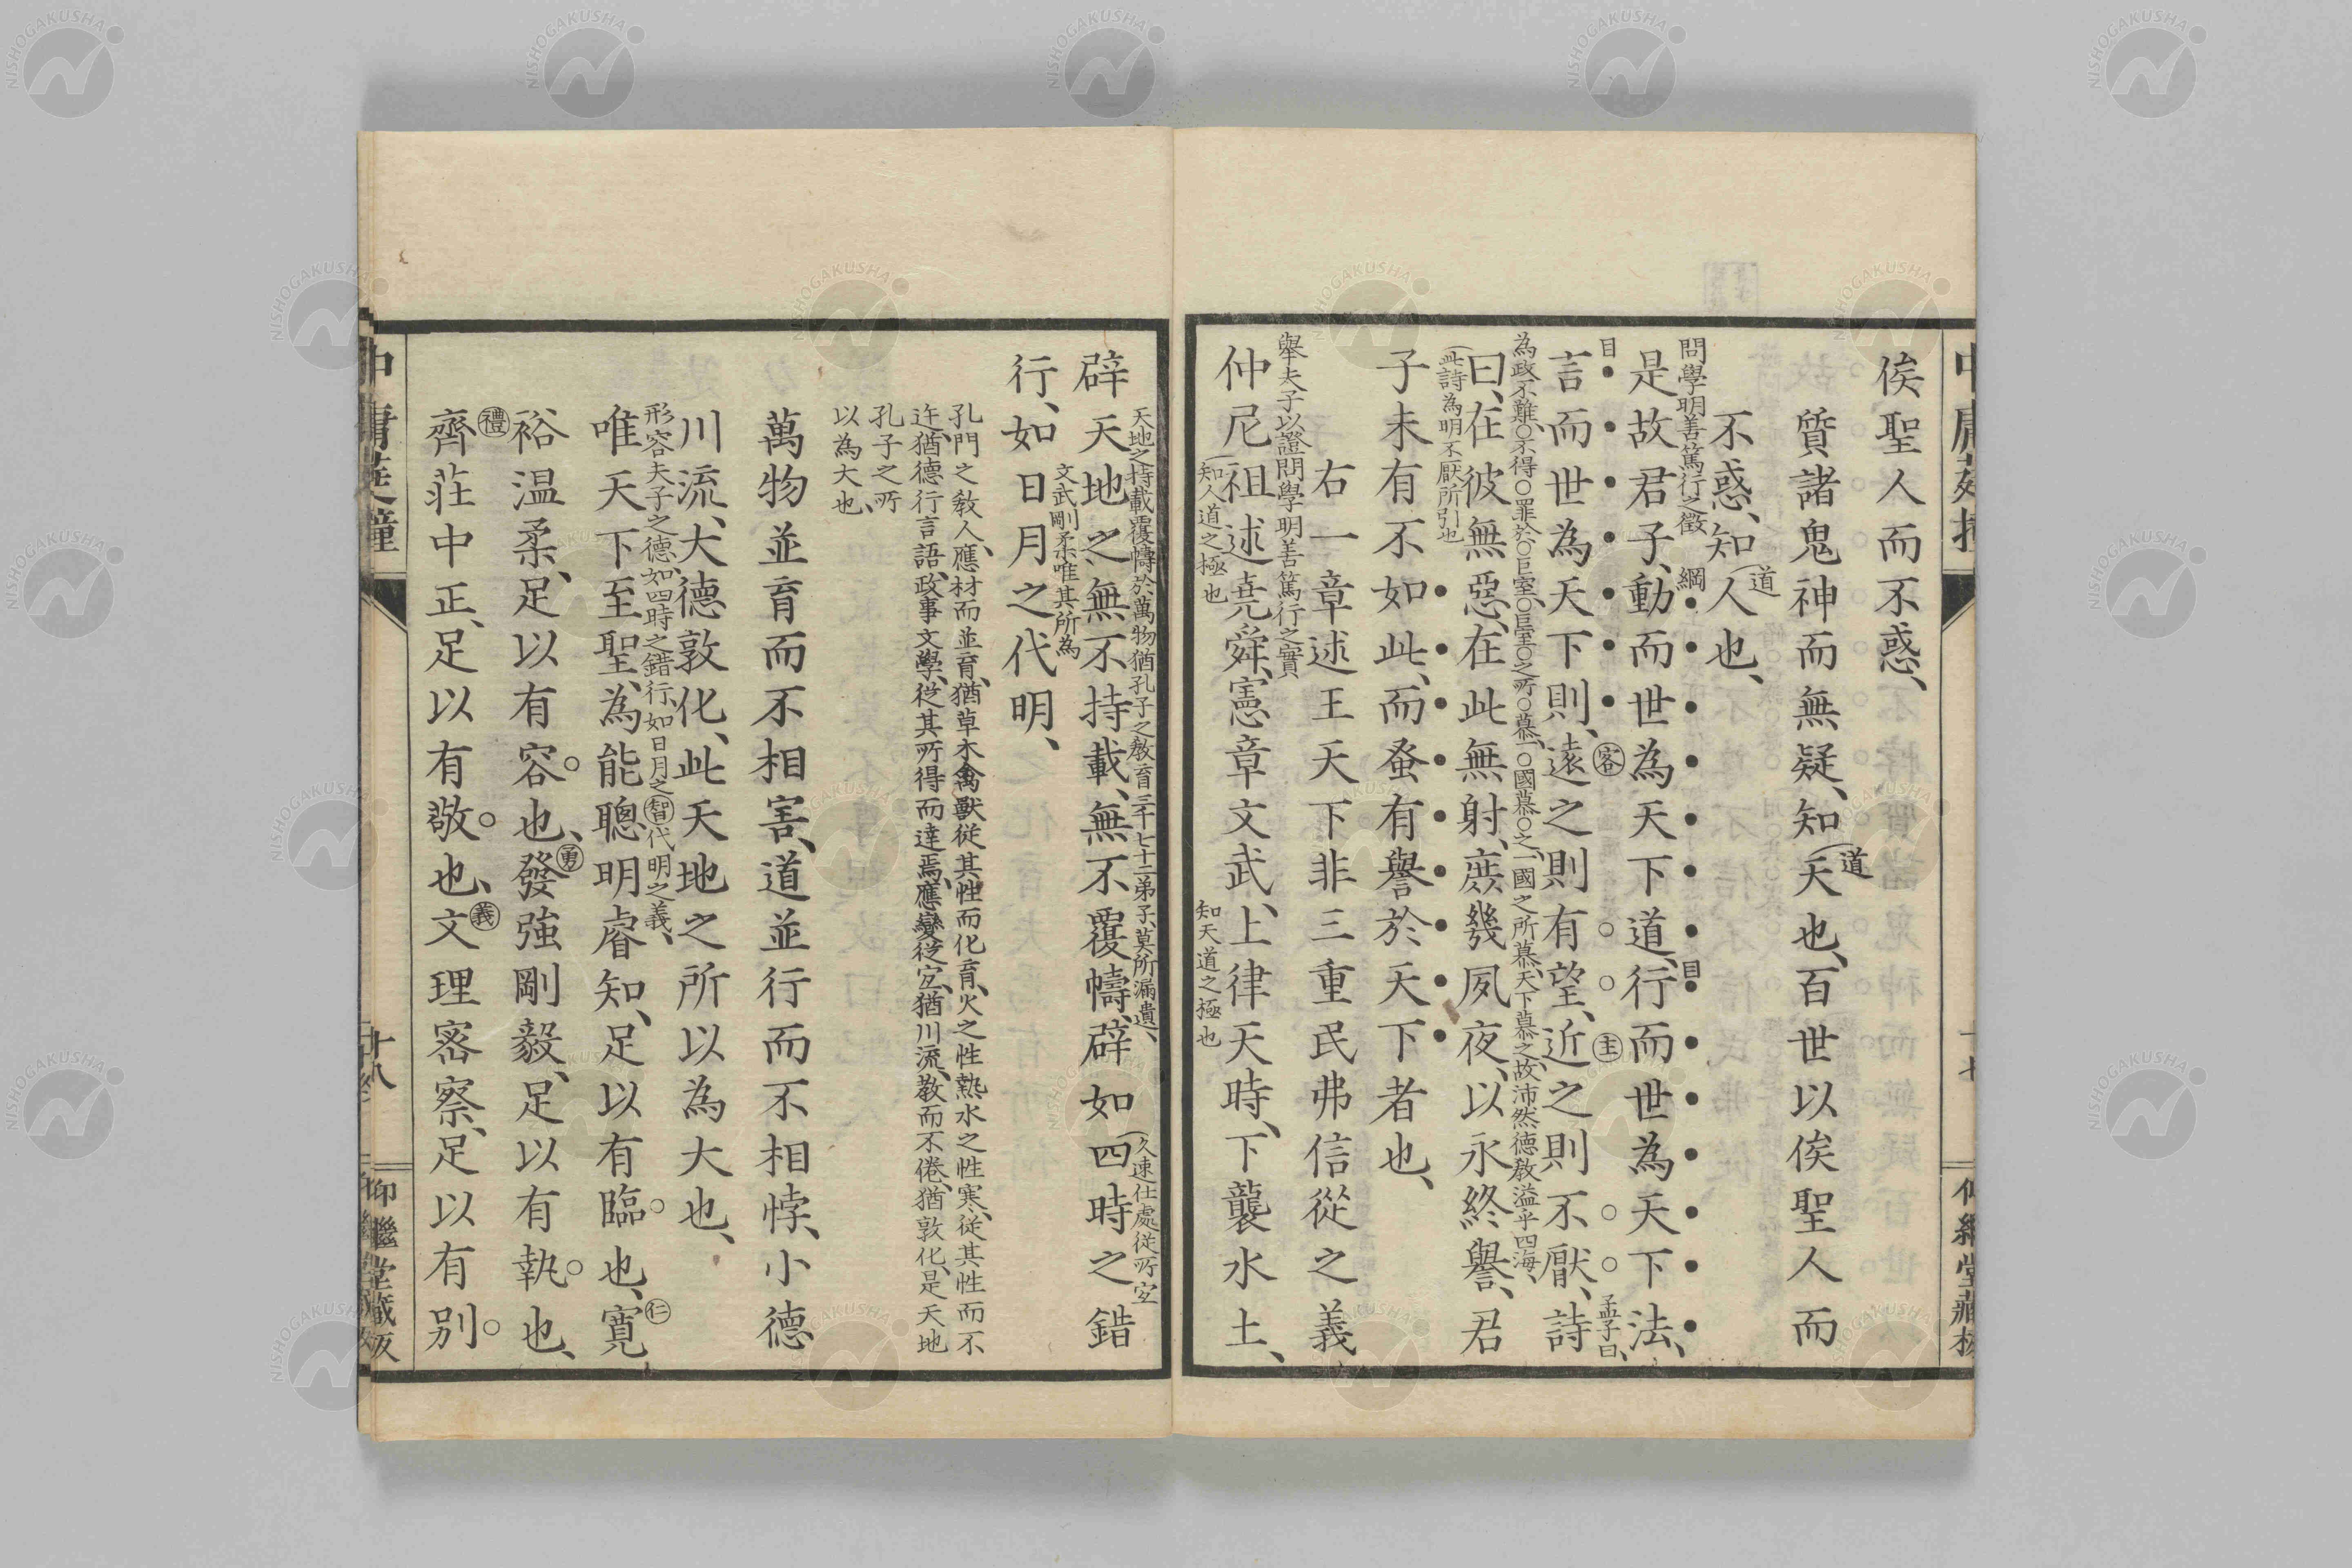 俟聖人而不惑、
質諸鬼神而無疑、知天也、百世以俟聖人而
道
不惑、知人也、
道
問學明善篤行之徵
綱
目
是故君子、動而世為天下道、行而世為天下法、
目
客
主
孟子曰、
言而世為天下則、遠之則有望、近之則不厭、詩
為政不難、不得罪於巨室、巨室之所慕、一國慕之、一國之所慕、天下慕之、故沛然德教溢乎四海、
曰、在彼無惡、在此無射、庶幾夙夜、以永終譽、君
此詩為明不厭所引也
子未有不如此、而蚤有譽於天下者也、
右一章述王天下非三重民弗信從之義
舉夫子以證問學明善篤行之實
仲尼祖述堯舜、憲章文武、上律天時、下襲水土、
知人道之極也
知天道之極也
天地之持載覆幬於萬物猶孔子之教育三千七十二弟子、莫所漏遺、
久速仕處從所宜
辟天地之、無不持載、無不覆幬、辟如四時之錯
文武剛柔唯其所為
行、如日月之代明、
孔門之教人、應材而並育、猶草木禽獸從其性而化育、火之性熱水之性寒、從其性而不
迕、猶德行言語、政事文學、從其所得而達焉、應變從宜、猶川流、教而不倦、猶敦化、是天地
孔子之所
以為大也、
萬物並育而不相害、道並行而不相悖、小德
川流、大德敦化、此天地之所以為大也、
形容夫子之德、如四時之錯行、如日月之代明之義、
智
唯天下至聖、為能聰明睿知、足以有臨也、寬
仁
裕温柔、足以有容也、發強剛毅、足以有執也、
勇
禮
齊莊中正、足以有敬也、文理密察、足以有別
義
十八
仰繼堂藏版
NISHOGAKUSHA